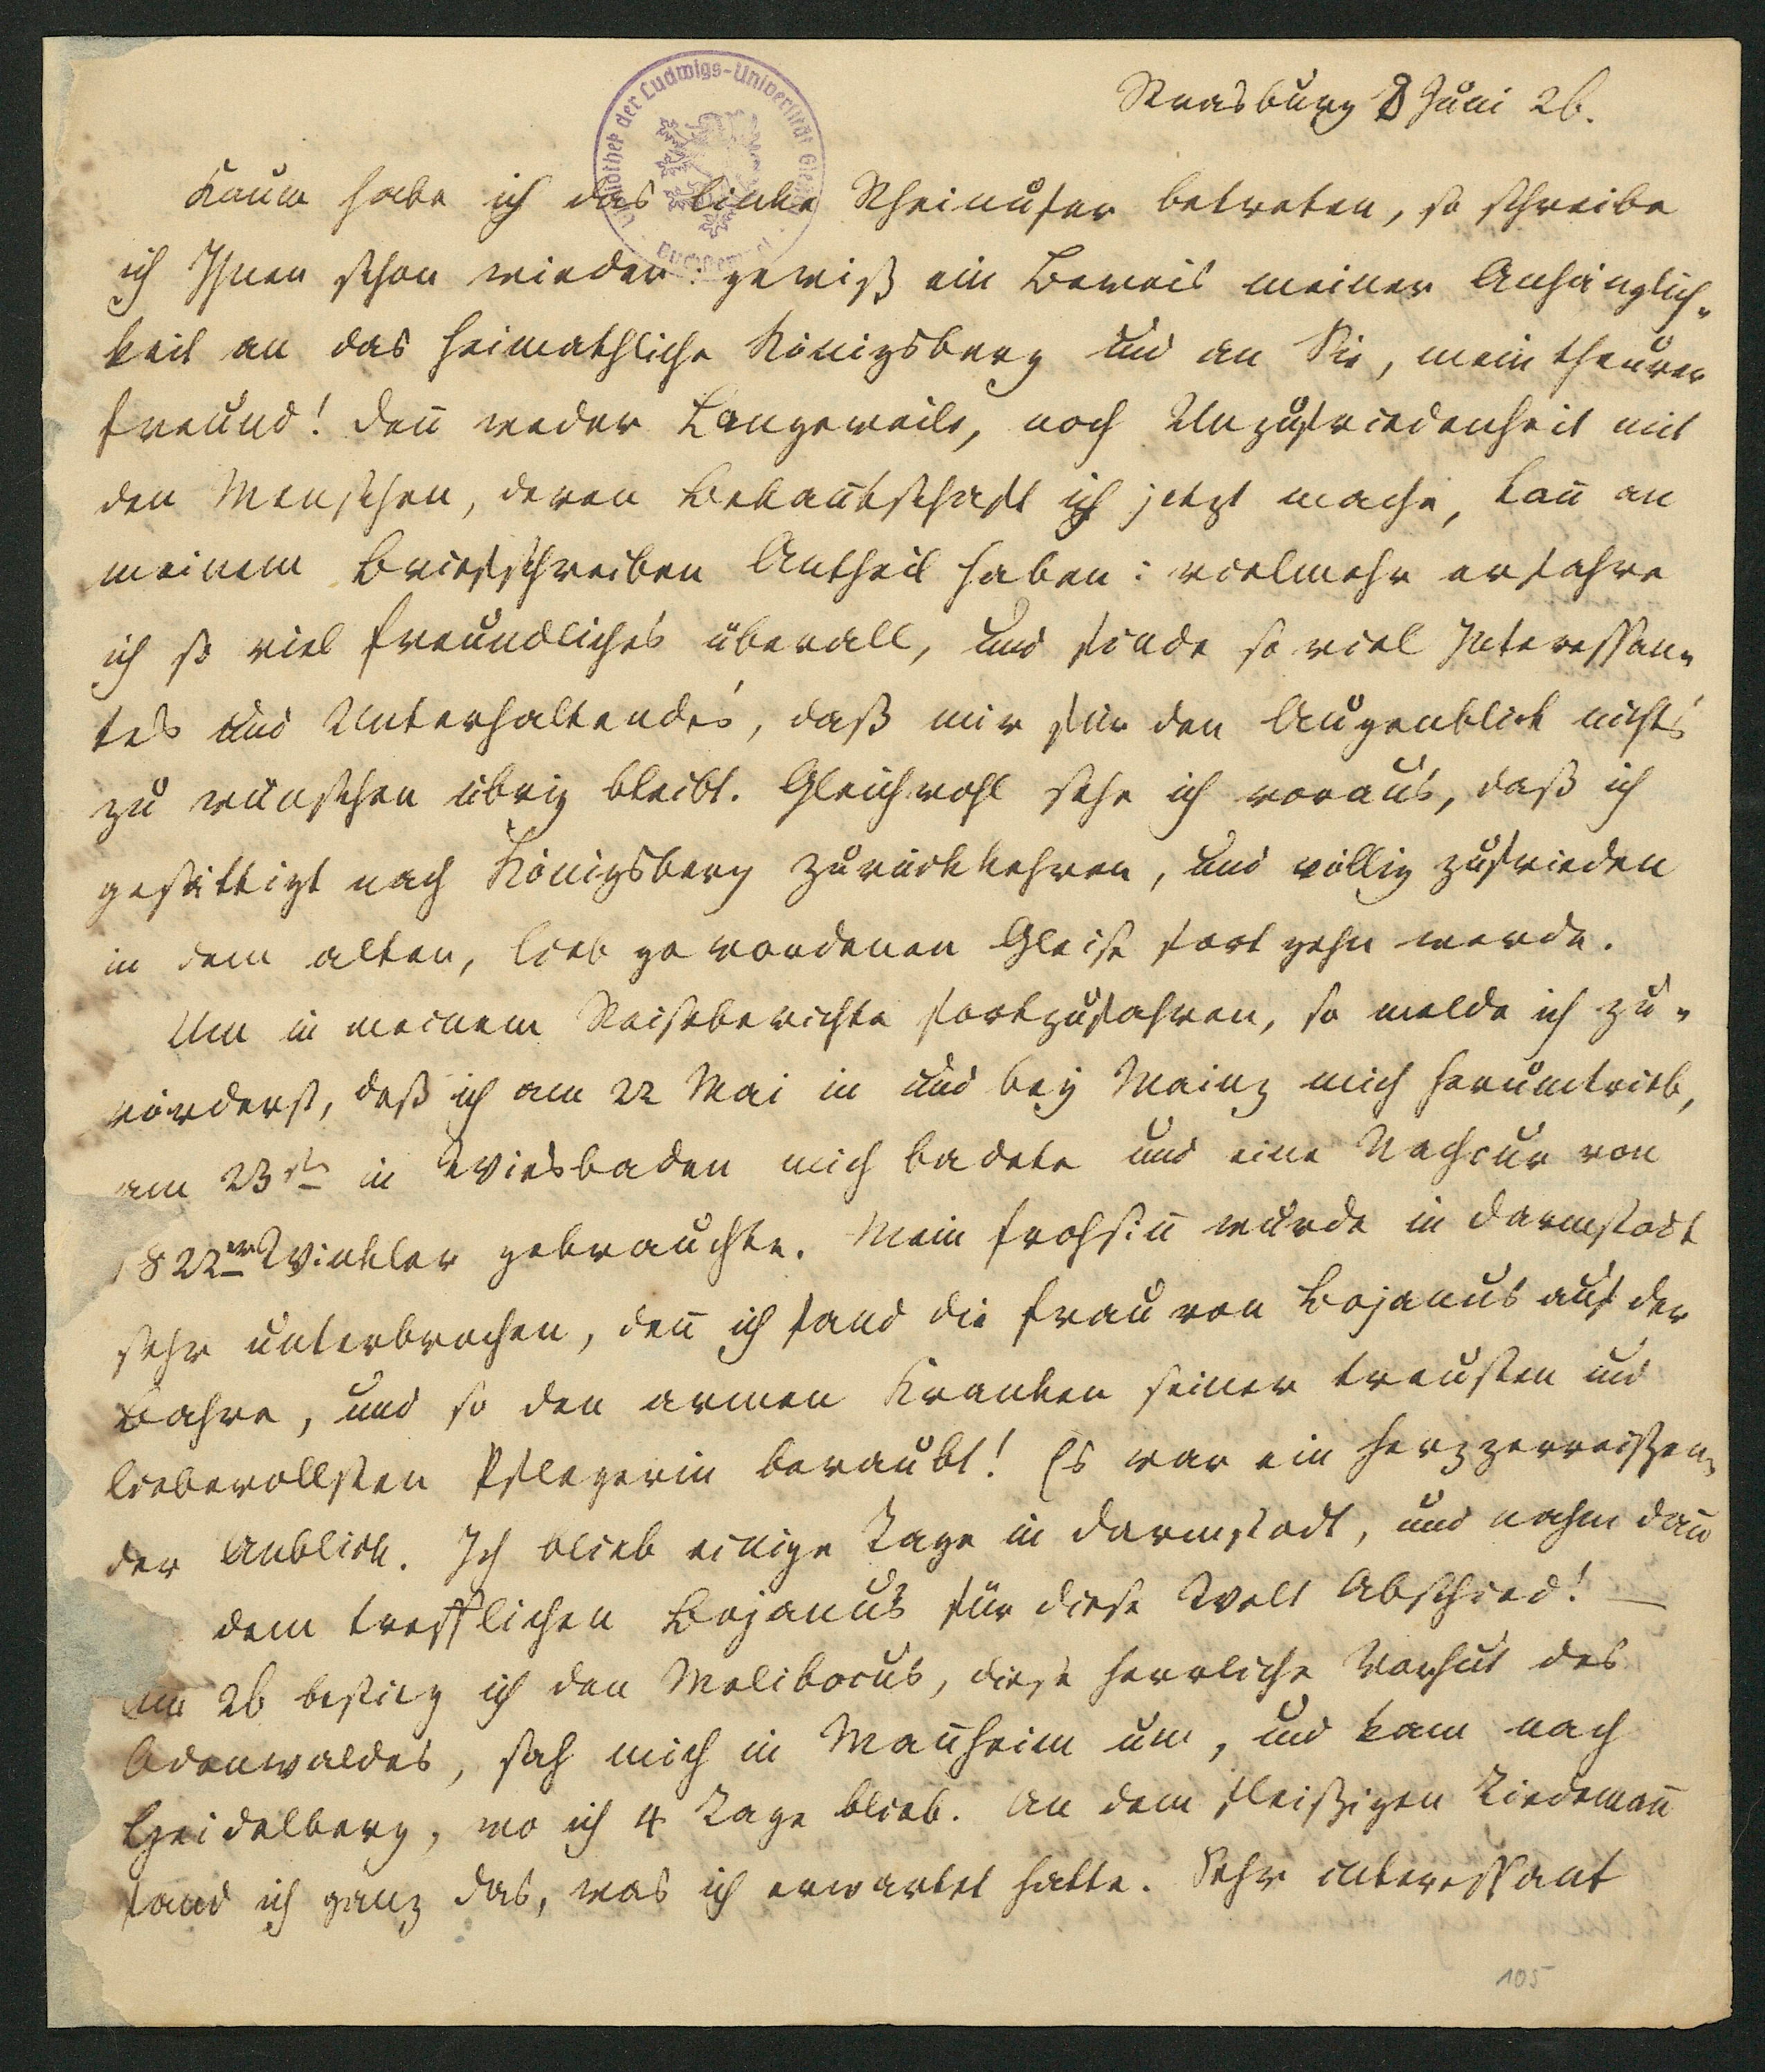 Strasburg 8 Juni 26.
Bibliothek der Ludwigs-Universität Giessen
Kaum habe ich das linke Rheinufer betreten, so schreibe
ich Ihnen schon wieder: gewiß ein Beweis meiner Anhänglich-
keit an das heimathliche Königsberg und an Sie, mein theurer
Freund! Deñ weder Langeweile, noch Unzufriedenheit mit
den Menschen, deren Bekañtschaft ich jetzt mache, kañ an
meinem Briefschreiben Antheil haben: vielmehr erfahre
ich so viel Freundliches überall, und finde so viel Interessan-
tes und Unterhaltendes, daß mir für den Augenblick nichts
zu wünschen übrig bleibt. Gleichwohl sehe ich voraus, daß ich
gesättigt nach Königsberg zurückkehren, und völlig zufrieden
in dem alten, lieb gewordenen Gleise fort gehn werde.
Um in meinem Reiseberichte fortzufahren, so melde ich zu-
vörderst, daß ich am 22 Mai in und bey Mainz mich herumtrieb,
am 23st in Wiesbaden mich badete und eine Nachcur von
1822er Winkler gebrauchte. Mein Frohsiñ wurde in Darmstadt
sehr unterbrochen, deñ ich fand die Frau von Bojanus auf der
Bahre, und so den armen Kranken seiner treusten und
liebevollsten Pflegerin beraubt! Es war ein herzzerreißen-
der Anblick. Ich blieb einige Tage in Darmstadt, und nahm dañ
dem trefflichen Bojanus für diese Welt Abschied! —
Am 26 bestieg ich den Melibocus, diese herrliche Vorhut des
Odenwaldes, sah mich in Mañheim um, und kam nach
Heidelberg, wo ich 4 Tage blieb. An dem fleißigen Tiedemañ
fand ich ganz das, was ich erwartet hatte. Sehr interessant
105